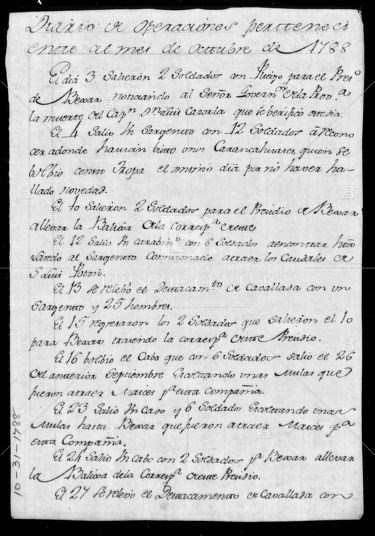 Diario de operaciones perteneci
ente al mes de Octubre de 1788
El dia 3 Salieron 2 Soldados con Pliego para el Presº
de Bexar noticiando al Señor Governºr de la Provª
la muerte del Capn Dn Luis Cazorla que se berificó este dia.
El 4 Salió Un Sargento con 12 Soldados a Recono
cer adonde havian visto unos Carancahuases, quien se
bolbio con su Tropa el mismo dia por no haver ha-
llado novedad.
El 10 Salieron 2 Soldados para el Presidio de Bexar
allevar la Balixa de la correspª de este
El 12 Salió Un carabinº con 6 Soldados aencontrar
al Sargento Comisionado atraer los Caudales de
Sn Luis Potosi.
El 13 Se relebó el Destacamto de Cavallada con un
Sargento y 25 hombres.
El 15 regresaron los 2 Soldados que salieron el 10
para Bexar trayendo la correspª de este Presidio.
El 16 bolbio el Cabo que con 6 Soldados salió el 26
del anterior Septiembre Escoltando unas Mulas que
fueron atraer Maices pª esta compañia.
El 23 Salió Un Cavo y 6 Soldados Escoltando unas
Mulas hasta Bexar que fueron atraer Maices pª
esta Compañia.
El 24 Salió Un Cabo con 2 Soldados pª Bexar allevar
la Balixa dela Correspª de este Presidio.
El 27 Se relevó el Destacamento de Cavallada con
10-31-1788